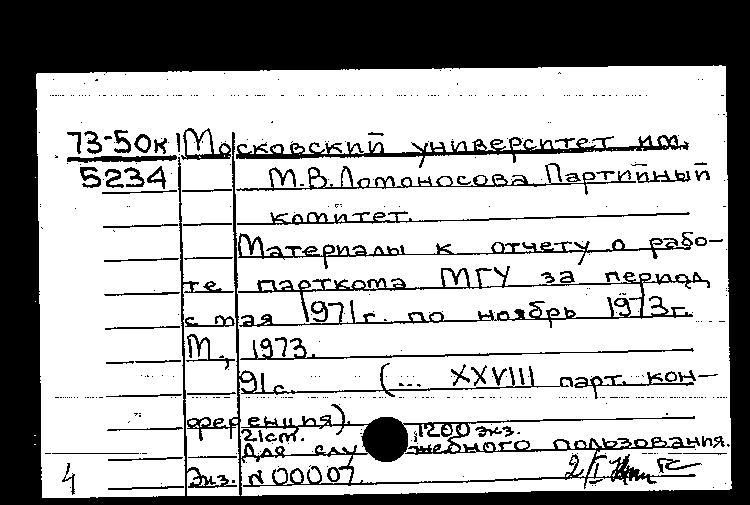 73-50к Московский университет им.
5234 М.В.Ломоносова Партийный
комитет.
Материалы к отчету о рабо-
те парткома МГУ за период
с мая 1971г. по ноябрь 1973г.
М., 1973.
91с. (... XXVIII парт. кон-
ференция).
21см. 1200 экз.
Для служебного пользования.
4 Экз. N 00007. 2/I